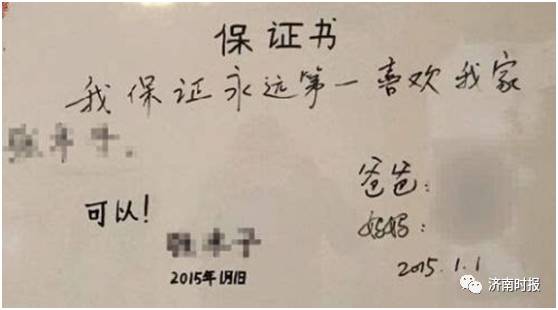 保证书
我保证永远第一喜欢我家
可以!
2015年1月1日
爸爸:
妈妈:
2015.1.1
济南时报